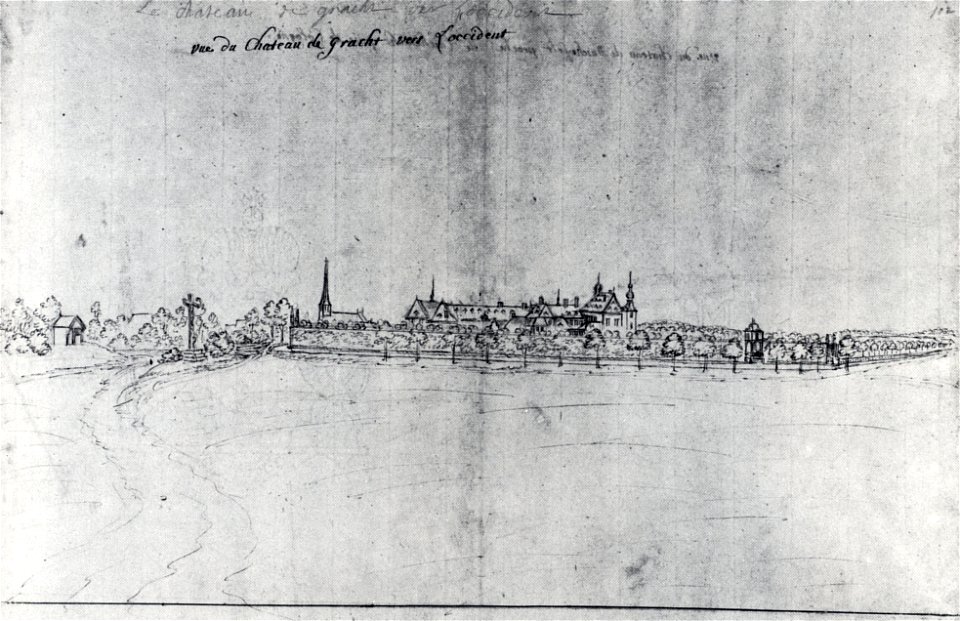 Le chateau de gracht vers l'occident
102
vue du Chateau de gracht vers l'occident